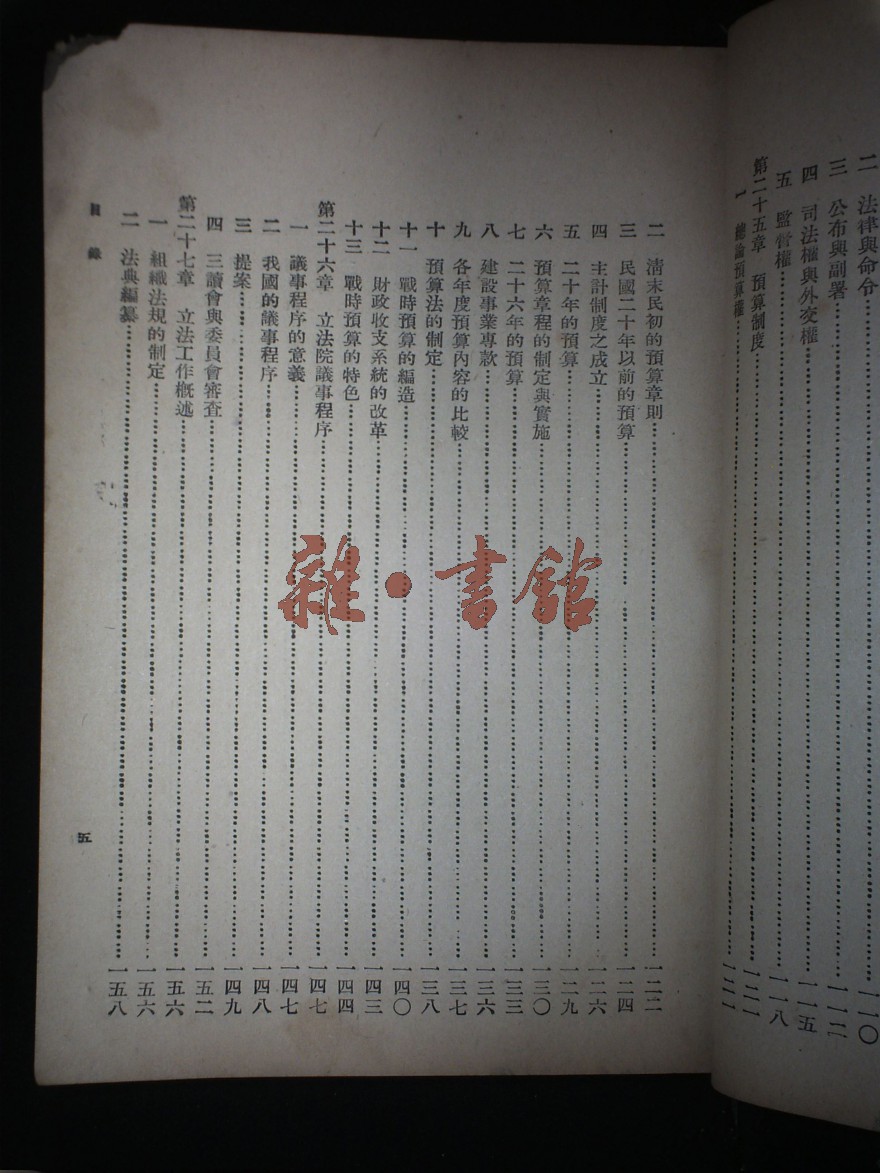 二 法律與命令……一一〇
三 公布與副署……一一二
四 司法權與外交權……一一五
五 監督權……一一八
第二十五章 預算制度……一二一
一 總論預算權……一二一
二 清末民初的預算章則……一二二
三 民國二十年以前的預算……一二四
四 主計制度之成立……一二六
五 二十年的預算……一二九
六 預算章程的制定與實施……一三〇
七 二十六年的預算……一三三
八 建設事業專款……一三六
九 各年度預算內容的比較……一三七
十 預算法的制定……一三八
十一 戰時預算的編造……一四〇
十二 財政收支系統的改革……一四三
十三 戰時預算的特色……一四四
第二十六章 立法院議事程序……一四七
一 議事程序的意義……一四七
二 我國的議事程序……一四八
三 提案……一四九
四 三讀會與委員會審查……一五二
第二十七章 立法工作概述……一五六
一 組織法規的制定……一五六
二 法典編纂……一五八
目錄
五
雜·書館